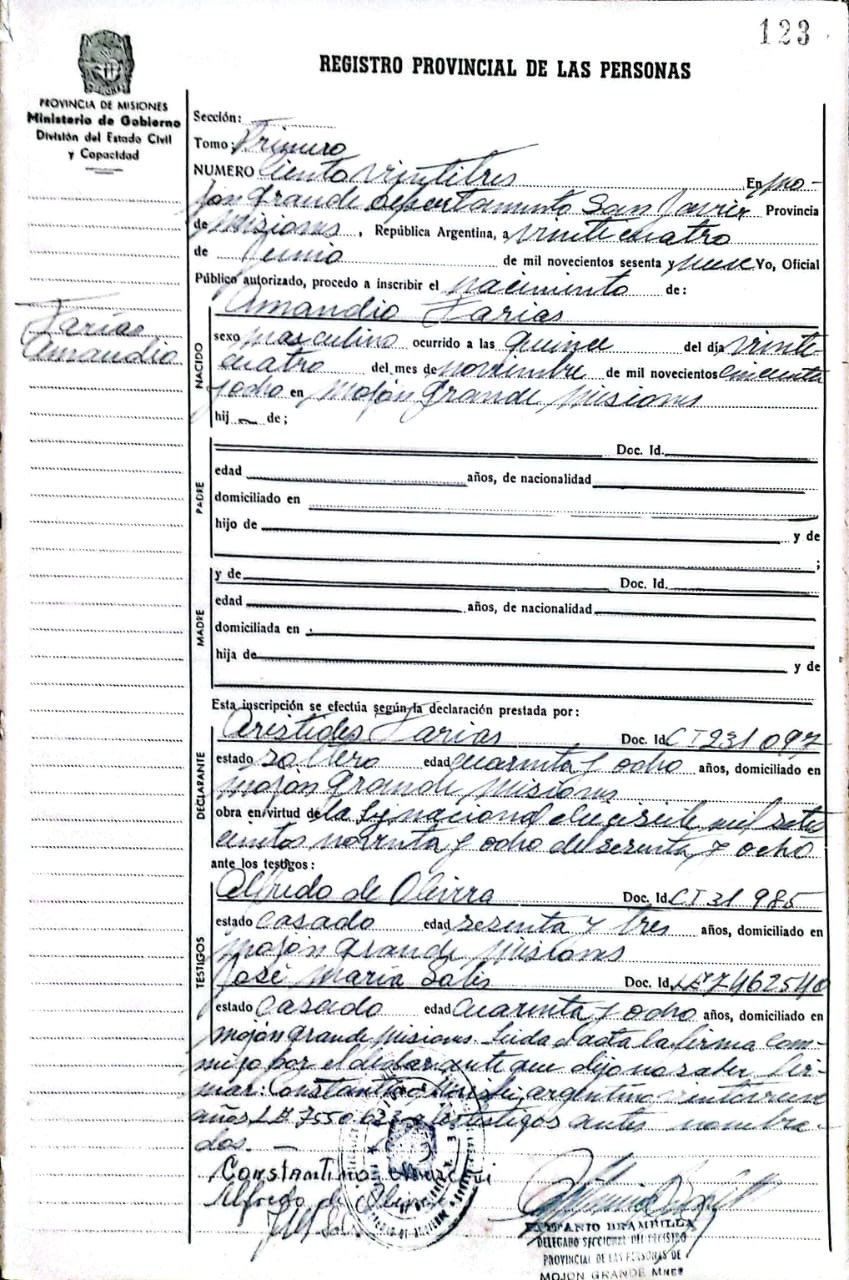 123
REGISTRO PROVINCIAL DE LAS PERSONAS
PROVINCIA DE MISIONES
Ministerio de Gobierno
División del Estado Civil
y Capacidad
Farías
Amandio
Sección:
Tomo: Primero
NUMERO Ciento vintitres En Mo-
jón Grande Departamento San Javier Provincia
de Misiones, República Argentina, a vinte cuatro
de Junio de mil novecientos sesenta y nueve Yo, Oficial
Público autorizado, procedo a inscribir el nacimiento de:
NACIDO
Amandio Farias
sexo masculino ocurrido a las quince del día vinte
cuatro del mes de noviembre de mil novecientos cincuenta
y ocho en Mojón Grande Misiones
hij de;
PADRE
Doc. Id.
edad años, de nacionalidad
domiciliado en
hijo de y de
;
MADRE
y de Doc. Id.
edad años, de nacionalidad
domiciliada en
hija de y de
Esta inscripción se efectúa según la declaración prestada por:
DECLARANTE
Aristides Farias Doc. Id. CI 231 097
estado soltero edad cuarenta y ocho años, domiciliado en
Mojón Grande Misiones
obra en virtud de la ley nacional diecisiete mil sete
cientos noventa y ocho del sesenta y ocho
ante los testigos:
TESTIGOS
Alfredo de Olivera Doc. Id. CI 31 985
estado casado edad sesenta y tres años, domiciliado en
Mojón Grande Misiones
José María Solis Doc. Id. LE 7462540
estado casado edad cuarenta y ocho años, domiciliado en
Mojón Grande Misiones. Leida el acta la firma con-
migo por el declarante que dijo no saber fir-
mar: Constantino argentino
años LE 7550 633 y los testigos antes nombra-
dos. —
Constantino
Alfredo de Olivera
BRAMBILLA
DELEGADO SECCIONAL DEL REGISTRO
PROVINCIAL DE LAS PERSONAS DE
MOJON GRANDE MNES